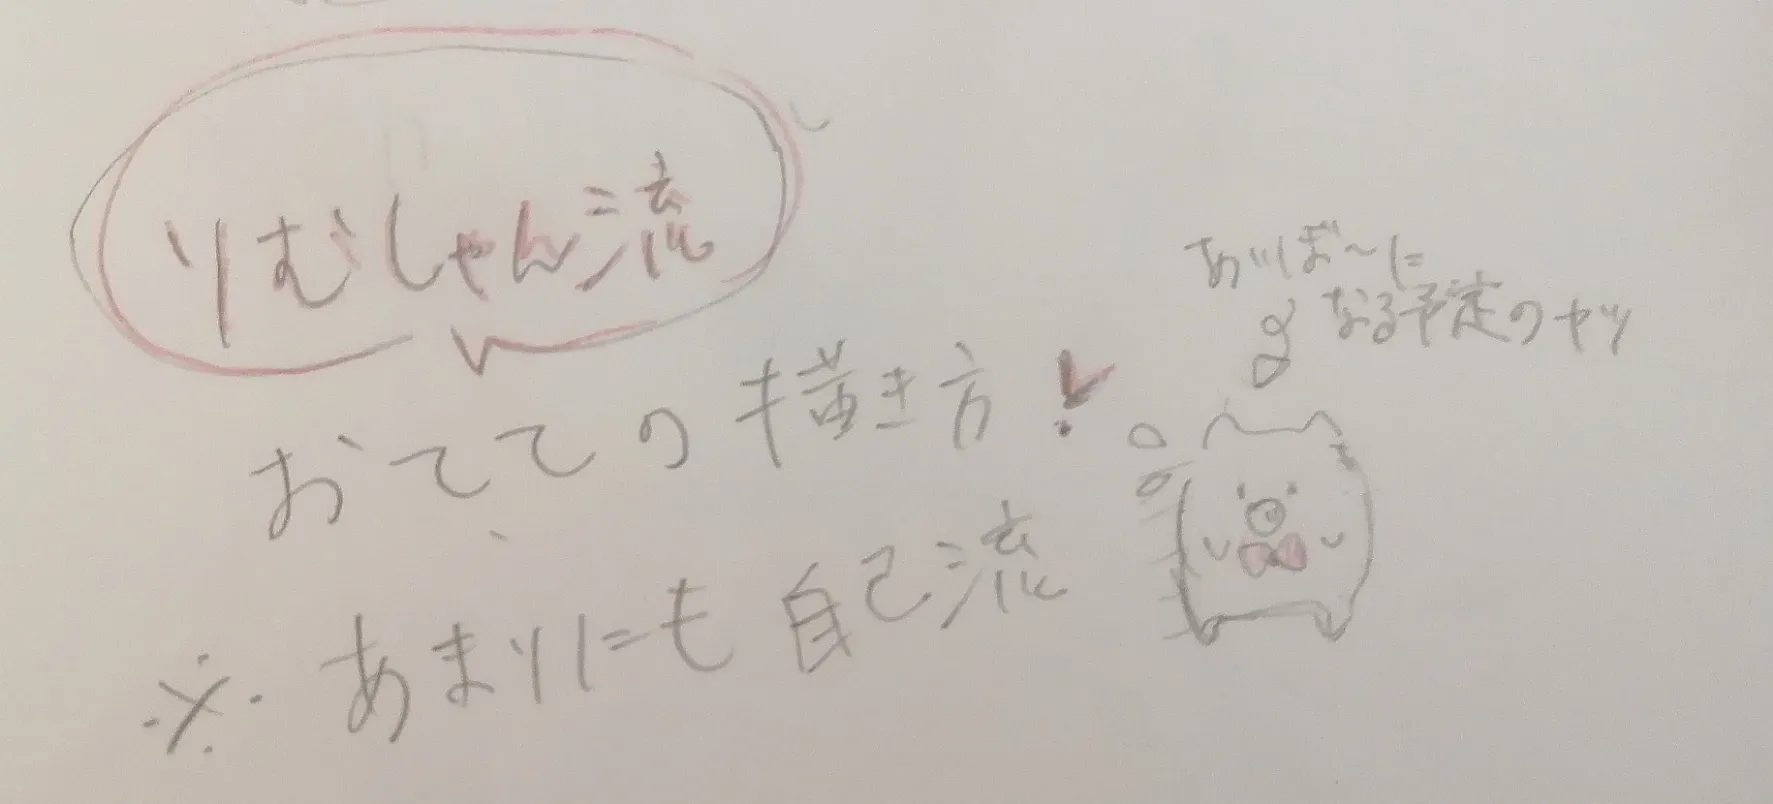 りむしゃん流
おてての描き方!
※あまりにも自己流
あいぼ〜に
なる予定のヤツ